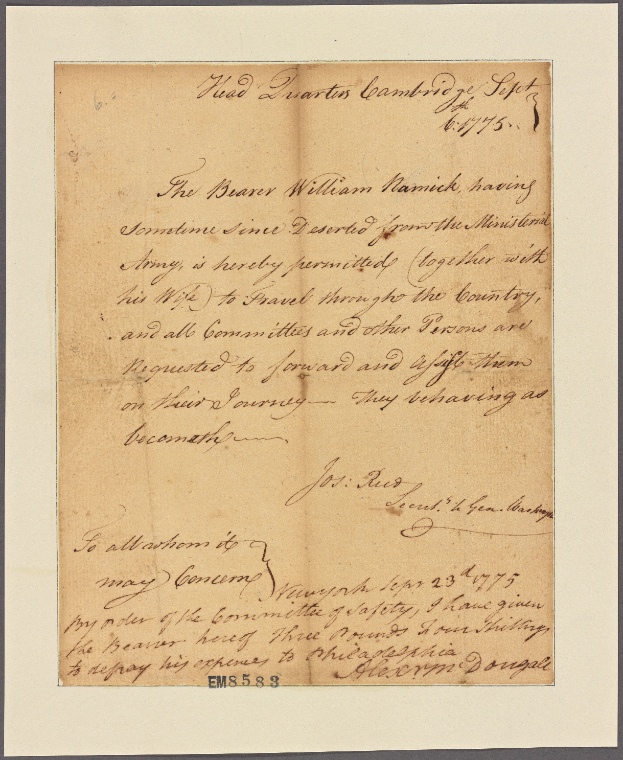 Head Quarters Cambridge Sept
6.th 1775.
The Bearer William Ramick, having
sometime since Deserted from the Ministerial
Army, is hereby permitted (together with
his Wife) to Travel through the Country,
and all Committees and other Persons are
Requested to forward and Assist them
on their Journey — They behaving as
becometh —
Jos: Reed
Secret.y to Gen. Washington
To all whom it
may Concern
New York Sepr 23d 1775
By order of the Committee of Safety, I have given
the Bearer hereof Three Pounds Four Shillings
to defray his expences to Philadelphia
Alexr McDougall
EM8583